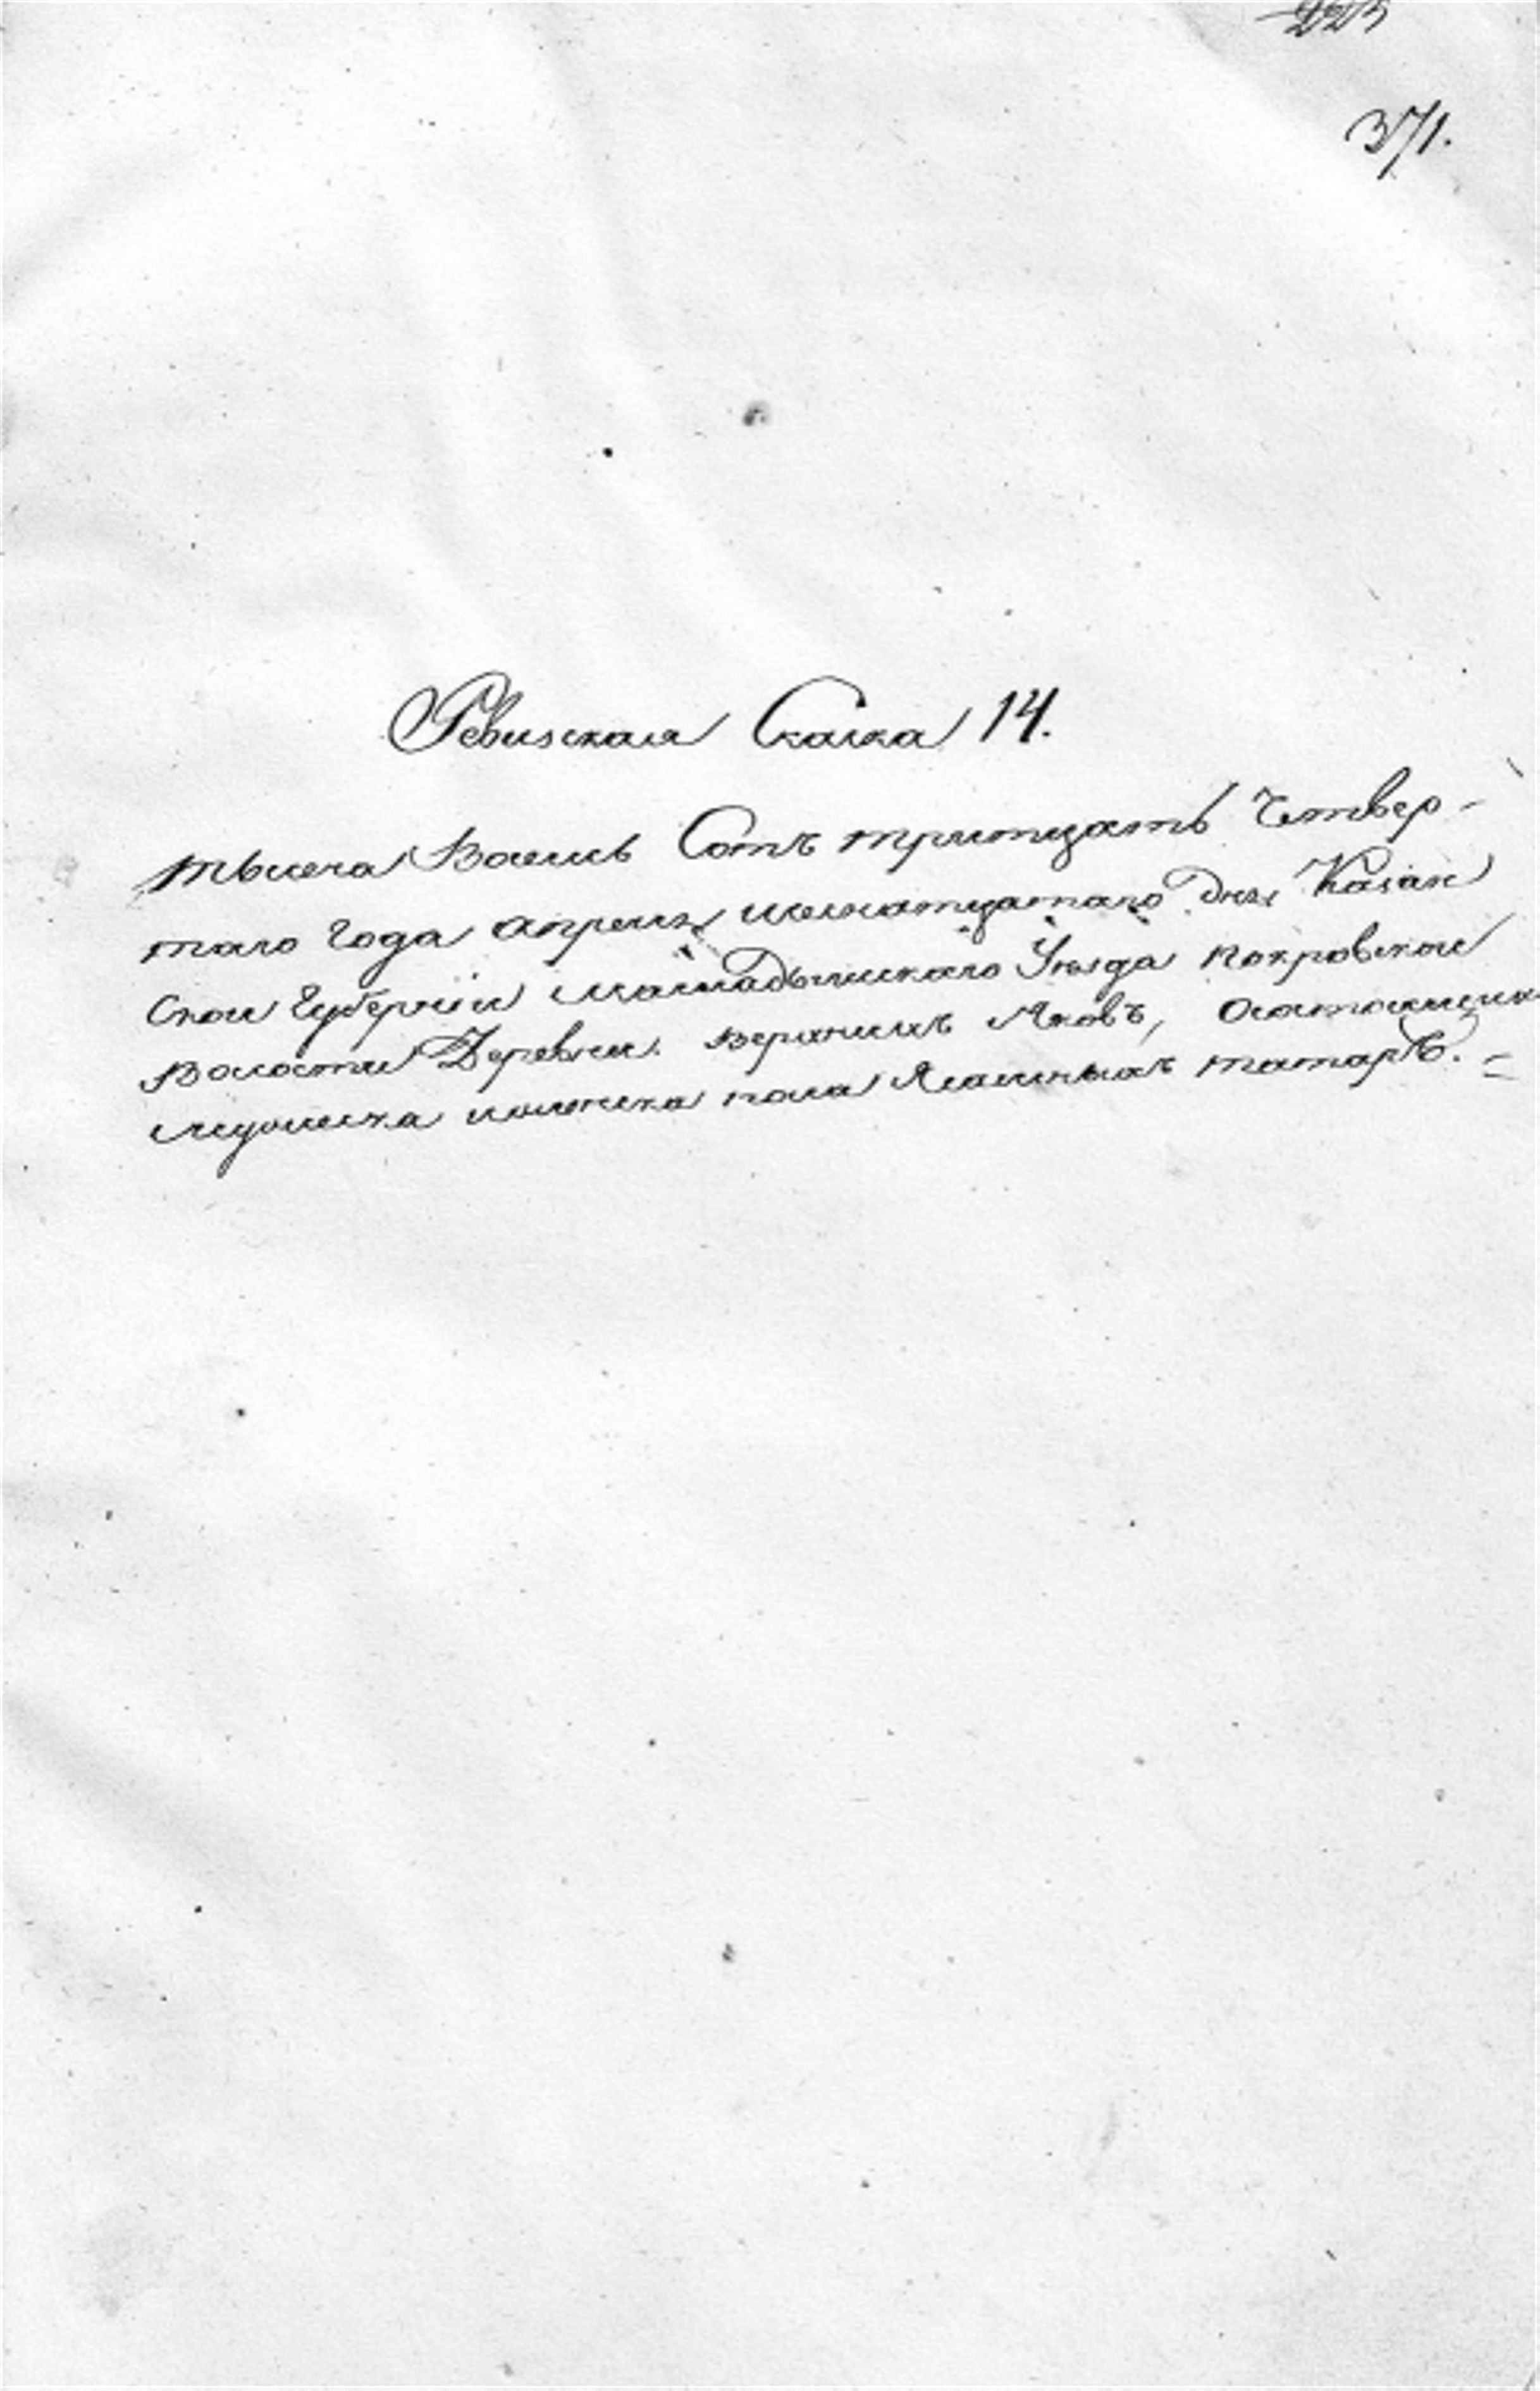 223
371.
Ревизская Сказка 14.
тысеча Восемь Сотъ тритцать Четвер-
таго Года апреля шеснатцатаго дня Казан
Скои Губернии мамадышскаго Уезда покровскои
волости Деревни верхнихъ Яковъ, Осостоящихъ
мужеска иженска пола Ясашныхъ татаръ. =